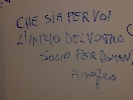 CHE SIA PER VOI
L'INIZIO DEL VOSTRO
SOGNO PER DOMANI